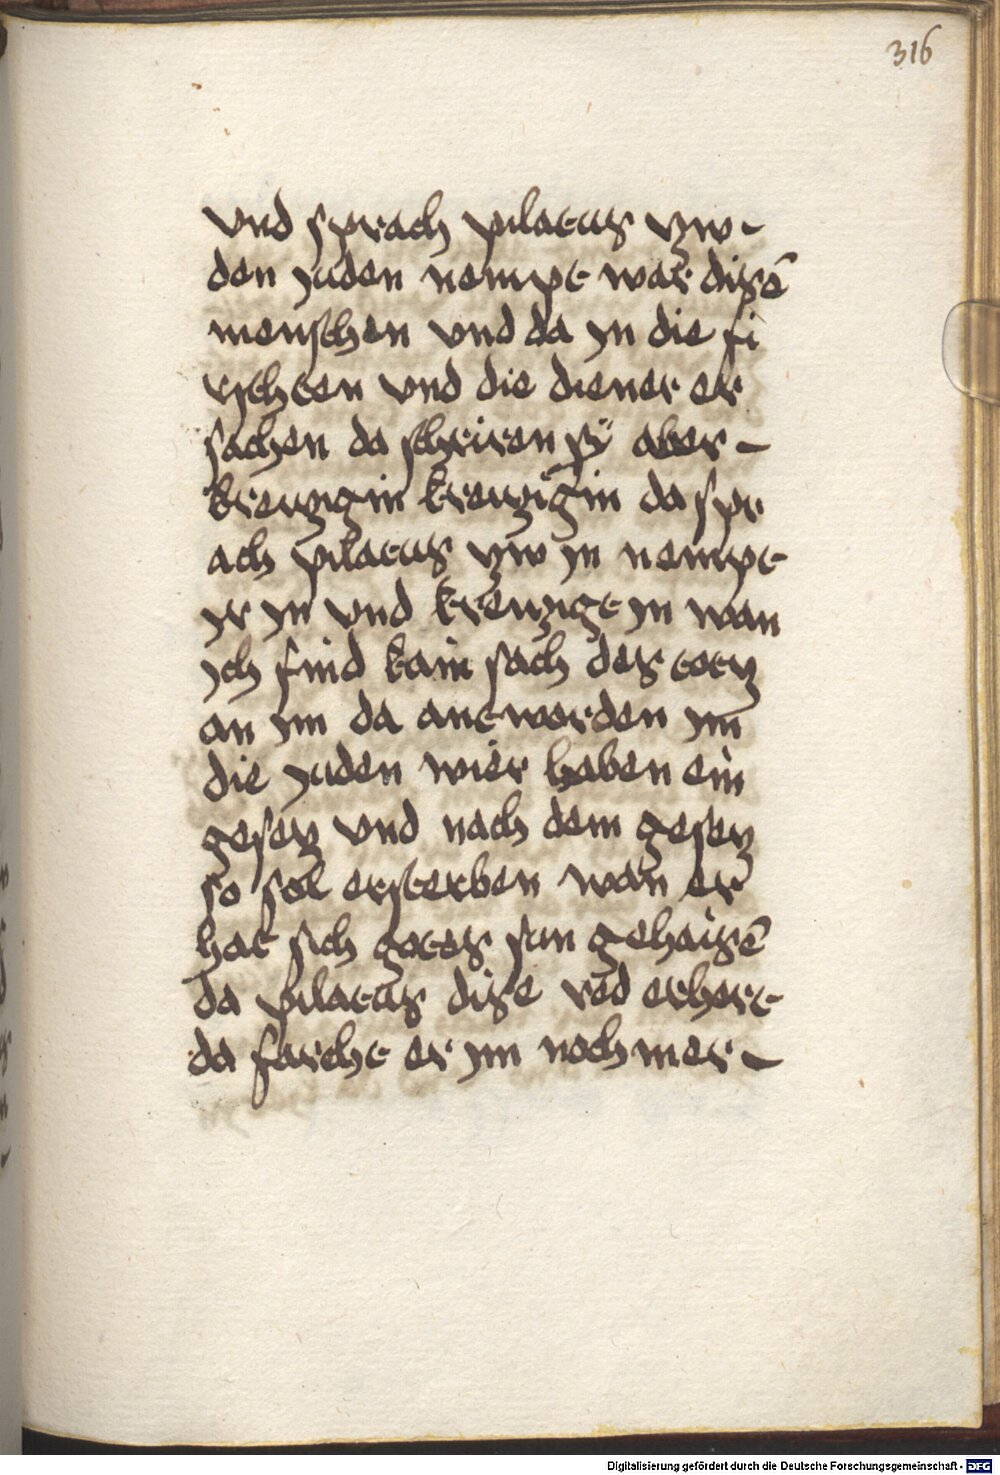 316
vnd sprach pilatus zw
den juden nempt war disē
menschen vnd da jn die fi
rschten vnd die diener er
sachen da schriren sÿ aber
kreuzig in kreuzig in da spr
ach pilatus zw jn nempt
jr jn vnd kreuzigt jn wan
jch find kain sach des totz
an jm da antworden jm
die juden wier haben ein
gesetz vnd nach dem gesetz
so sol ersterben wan er
hat sich gotes sun gehaisē
da pilatus dise red erhort
da farcht er jm noch mer
Digitalisierung gefördert durch die Deutsche Forschungsgemeinschaft - DFG